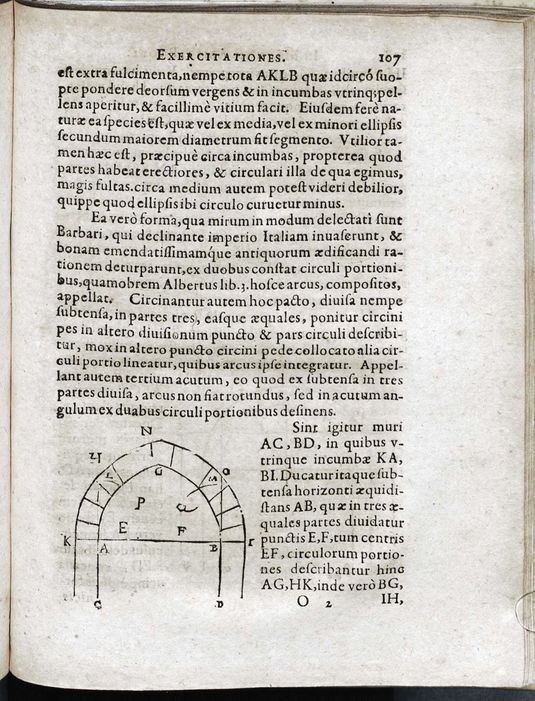 EXERCITATIONES. 107
est extra fulcimenta, nempe tota AKLB quæ idcircó suo-
pte pondere deorsum vergens & in incumbas vtrinq; pel-
lens aperitur, & facillimè vitium facit. Eiusdem ferè na-
turæ ea species est, quæ vel ex media, vel ex minori ellipsis
secundum maiorem diametrum fit segmento. Vtilior ta-
men hæc est, præcipuè circa incumbas, propterea quod
partes habeat erectiores, & circulari illa de qua egimus,
magis fultas. circa medium autem potest videri debilior,
quippe quod ellipsis ibi circulo curuetur minus.
Ea verò forma, qua mirum in modum delectati sunt
Barbari, qui declinante imperio Italiam inuaserunt, &
bonam emendatissimamque antiquorum ædificandi ra-
tionem deturparunt, ex duobus constat circuli portioni-
bus, quamobrem Albertus lib. 3. hosce arcus, compositos,
appellat. Circinantur autem hoc pacto, diuisa nempe
subtensa, in partes tres, easque æquales, ponitur circini
pes in altero diuisionum puncto & pars circuli describi-
tur, mox in altero puncto circini pede collocato alia cir-
culi portio lineatur, quibus arcus ipse integratur. Appel-
lant autem tertium acutum, eo quod ex subtensa in tres
partes diuisa, arcus non fiat rotundus, sed in acutum an-
gulum ex duabus circuli portionibus desinens.
Sint igitur muri
AC, BD, in quibus v-
trinque incumbæ KA,
BI. Ducatur itaque sub-
tensa horizonti æquidi-
stans AB, quæ in tres æ-
quales partes diuidatur
punctis E, F, tum centris
EF, circulorum portio-
nes describantur hinc
AG, HK, inde verò BG,
O 2 IH,
N
H
G
M
O
P
Q
E
F
K
A
B
I
C
D